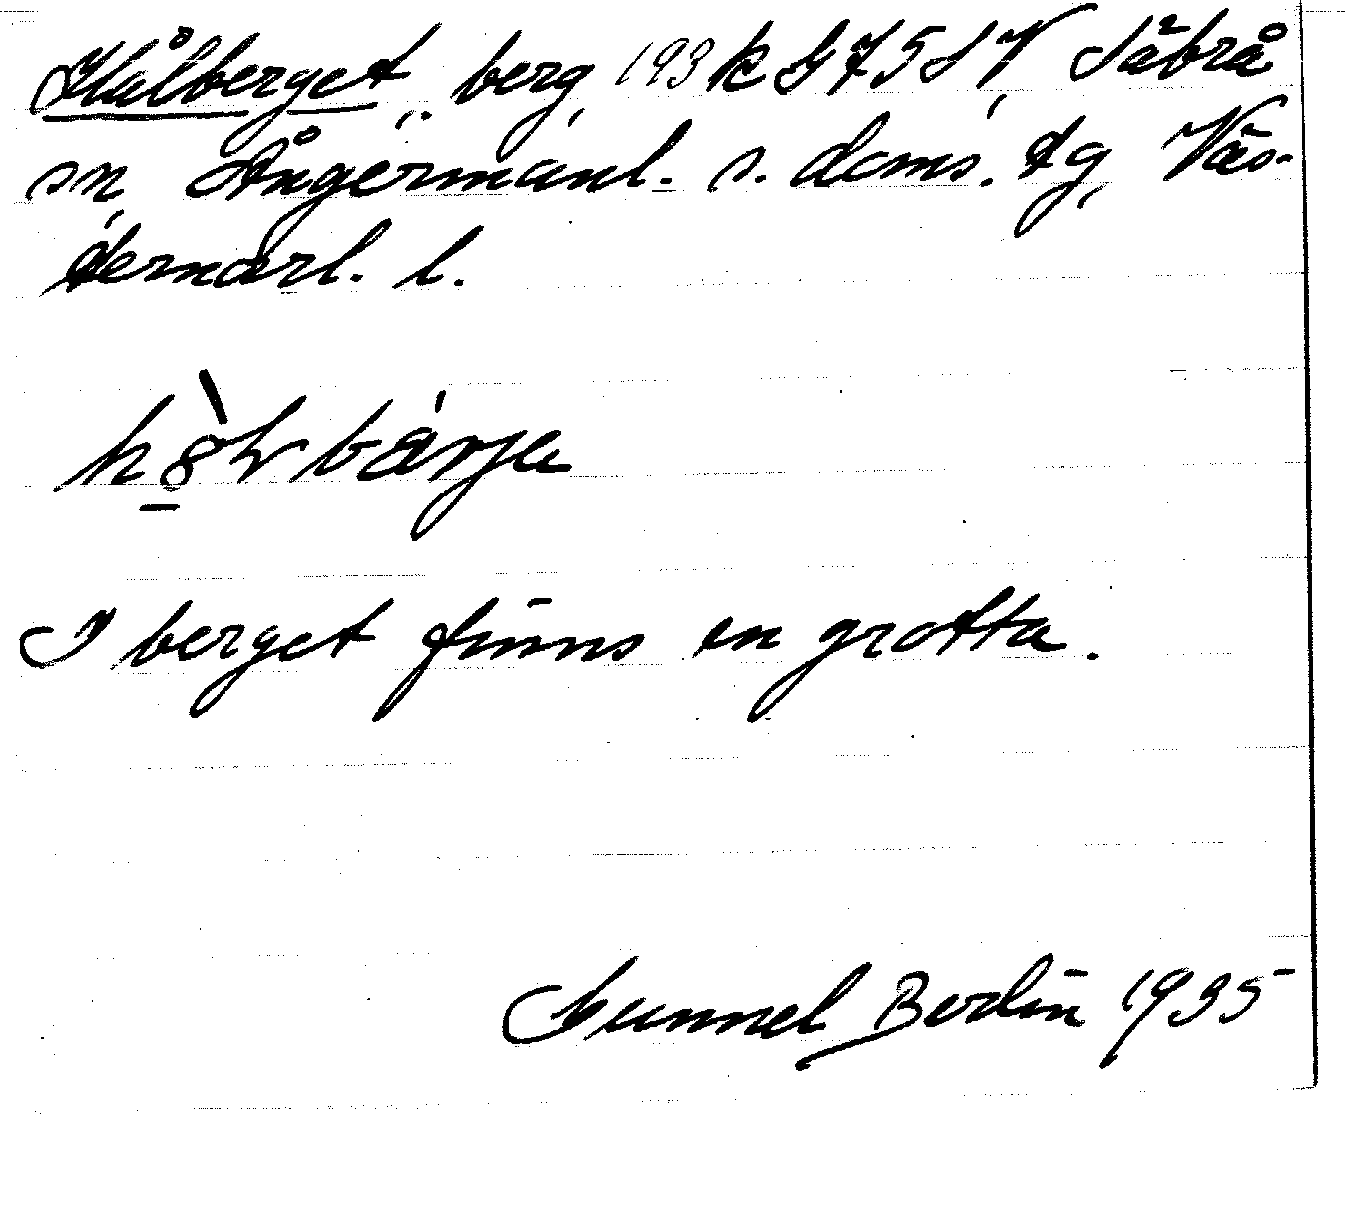 Hålberget berg 193 k G 75 SV Säbrå
sn Ångermanl. s. doms. tg Väs-
ternorrl. l.
bärja
I berget finns en grotta.
Gunnel Berlin 1935